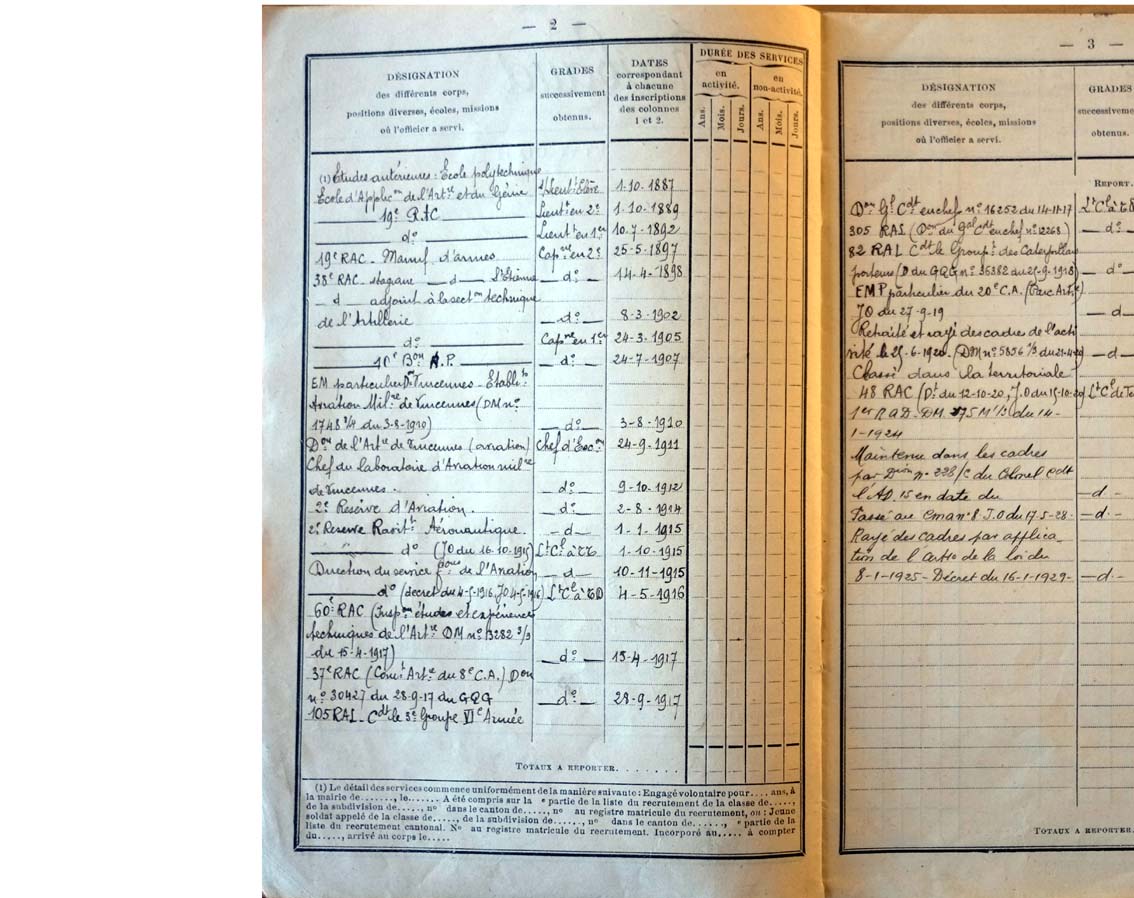 — 2 —
DÉSIGNATION
des différents corps,
positions diverses, écoles, missions
où l'officier a servi.
GRADES
successivement
obtenus.
DATES
correspondant
à chacune
des inscriptions
des colonnes
1 et 2.
DURÉE DES SERVICES
en activité.
en non-activité.
Ans. Mois. Jours. Ans. Mois. Jours.
(1) Etudes antérieures : Ecole polytechnique
Ecole d'Applic^on de l'Art^ie et du Génie S/Lieut^t Elève 1-10-1887
19^e RAC Lieut^t en 2^e 1-10-1889
d° Lieut^t en 1^er 10-7-1892
19^e RAC - Manuf. d'armes Cap^ne en 2^e 25-5-1897
38^e RAC - stagiaire — d — S^t Etienne — d° — 14-4-1898
— d — adjoint à la sect^on technique
de l'Artillerie — d° — 8-3-1902
d° Cap^ne en 1^er 24-3-1905
10^e B^on A.P. — d° — 24-7-1907
EM particulier D^on Vincennes - Etabl^t
Aviation Mil^re de Vincennes (DM n°
1748 3/4 du 3-8-1910) — d° — 3-8-1910
D^on de l'Art^ie de Vincennes (aviation) Chef d'Esc^on 24-9-1911
Chef du laboratoire d'Aviation mil^re
de Vincennes — d° — 9-10-1912
2^e Réserve d'Aviation. — d° — 2-8-1914
2^e Reserve Ravit^t Aéronautique. — d — 1-1-1915
d° (JO du 16-10-1915) L^t C^l à TT. 1-10-1915
Direction du service de l'Aviation — d — 10-11-1915
d° (decret du 4-5-1916, JO 4-5-1916) L^t C^l à TD 4-5-1916
60^e RAC (Insp^on études et expérience
techniques de l'Art^ie DM n° 13282 3/3
du 15-4-1917) — d° — 15-4-1917
37^e RAC (Com^t Art^ie du 8^e C.A.) D^on
n° 30427 du 28-9-17 du GQG — d° — 28-9-1917
105 RAL - C^dt le 3^e Groupe VI^e Armée
TOTAUX A REPORTER.
(1) Le détail des services commence uniformément de la manière suivante : Engagé volontaire pour.... ans, à
la mairie de......., le....... A été compris sur la ^e partie de la liste du recrutement de la classe de.....,
de la subdivision de....., n° dans le canton de....., n° au registre matricule du recrutement, ou : Jeune
soldat appelé de la classe de....., de la subdivision de......, n° dans le canton de......, ^e partie de la
liste du recrutement cantonal. N° au registre matricule du recrutement. Incorporé au..... à compter
du....., arrivé au corps le.....
— 3 —
DÉSIGNATION
des différents corps,
positions diverses, écoles, missions
où l'officier a servi.
GRADES
successivement
obtenus.
REPORT.
D^on G^l C^dt en chef n° 16252 du 14-11-17
305 RAL (D^on du G^al C^dt en chef n° 12268) — d° —
82 RAL C^dt le Group^t des Caterpillars
porteurs (D du GQG n° 36382 du 25-9-1918) — d°
EMP particulier du 20^e C.A. (Parc Art^ie)
JO du 27-9-19 — d —
Retraité et rayé des cadres de l'acti
vité le 25-6-1920. (DM n° 5856 1/3 du 21-4-20) — d —
Classé dans la territoriale
48 RAC (D^t du 12-10-20, J.O du 15-10-20)
1^er RAD - DM 375 M 1/3 du 14-
1-1924
Maintenu dans les cadres
par D^ion n° 228/c du Colonel Cdt
l'AD 15 en date du — d —
Passé au n° 8 J.O du 17-5-28. — d. —
Rayé des cadres par applica
tion de l'art de la loi du
8-1-1925 - Décret du 16-1-1929 — d —
TOTAUX A REPORTER.